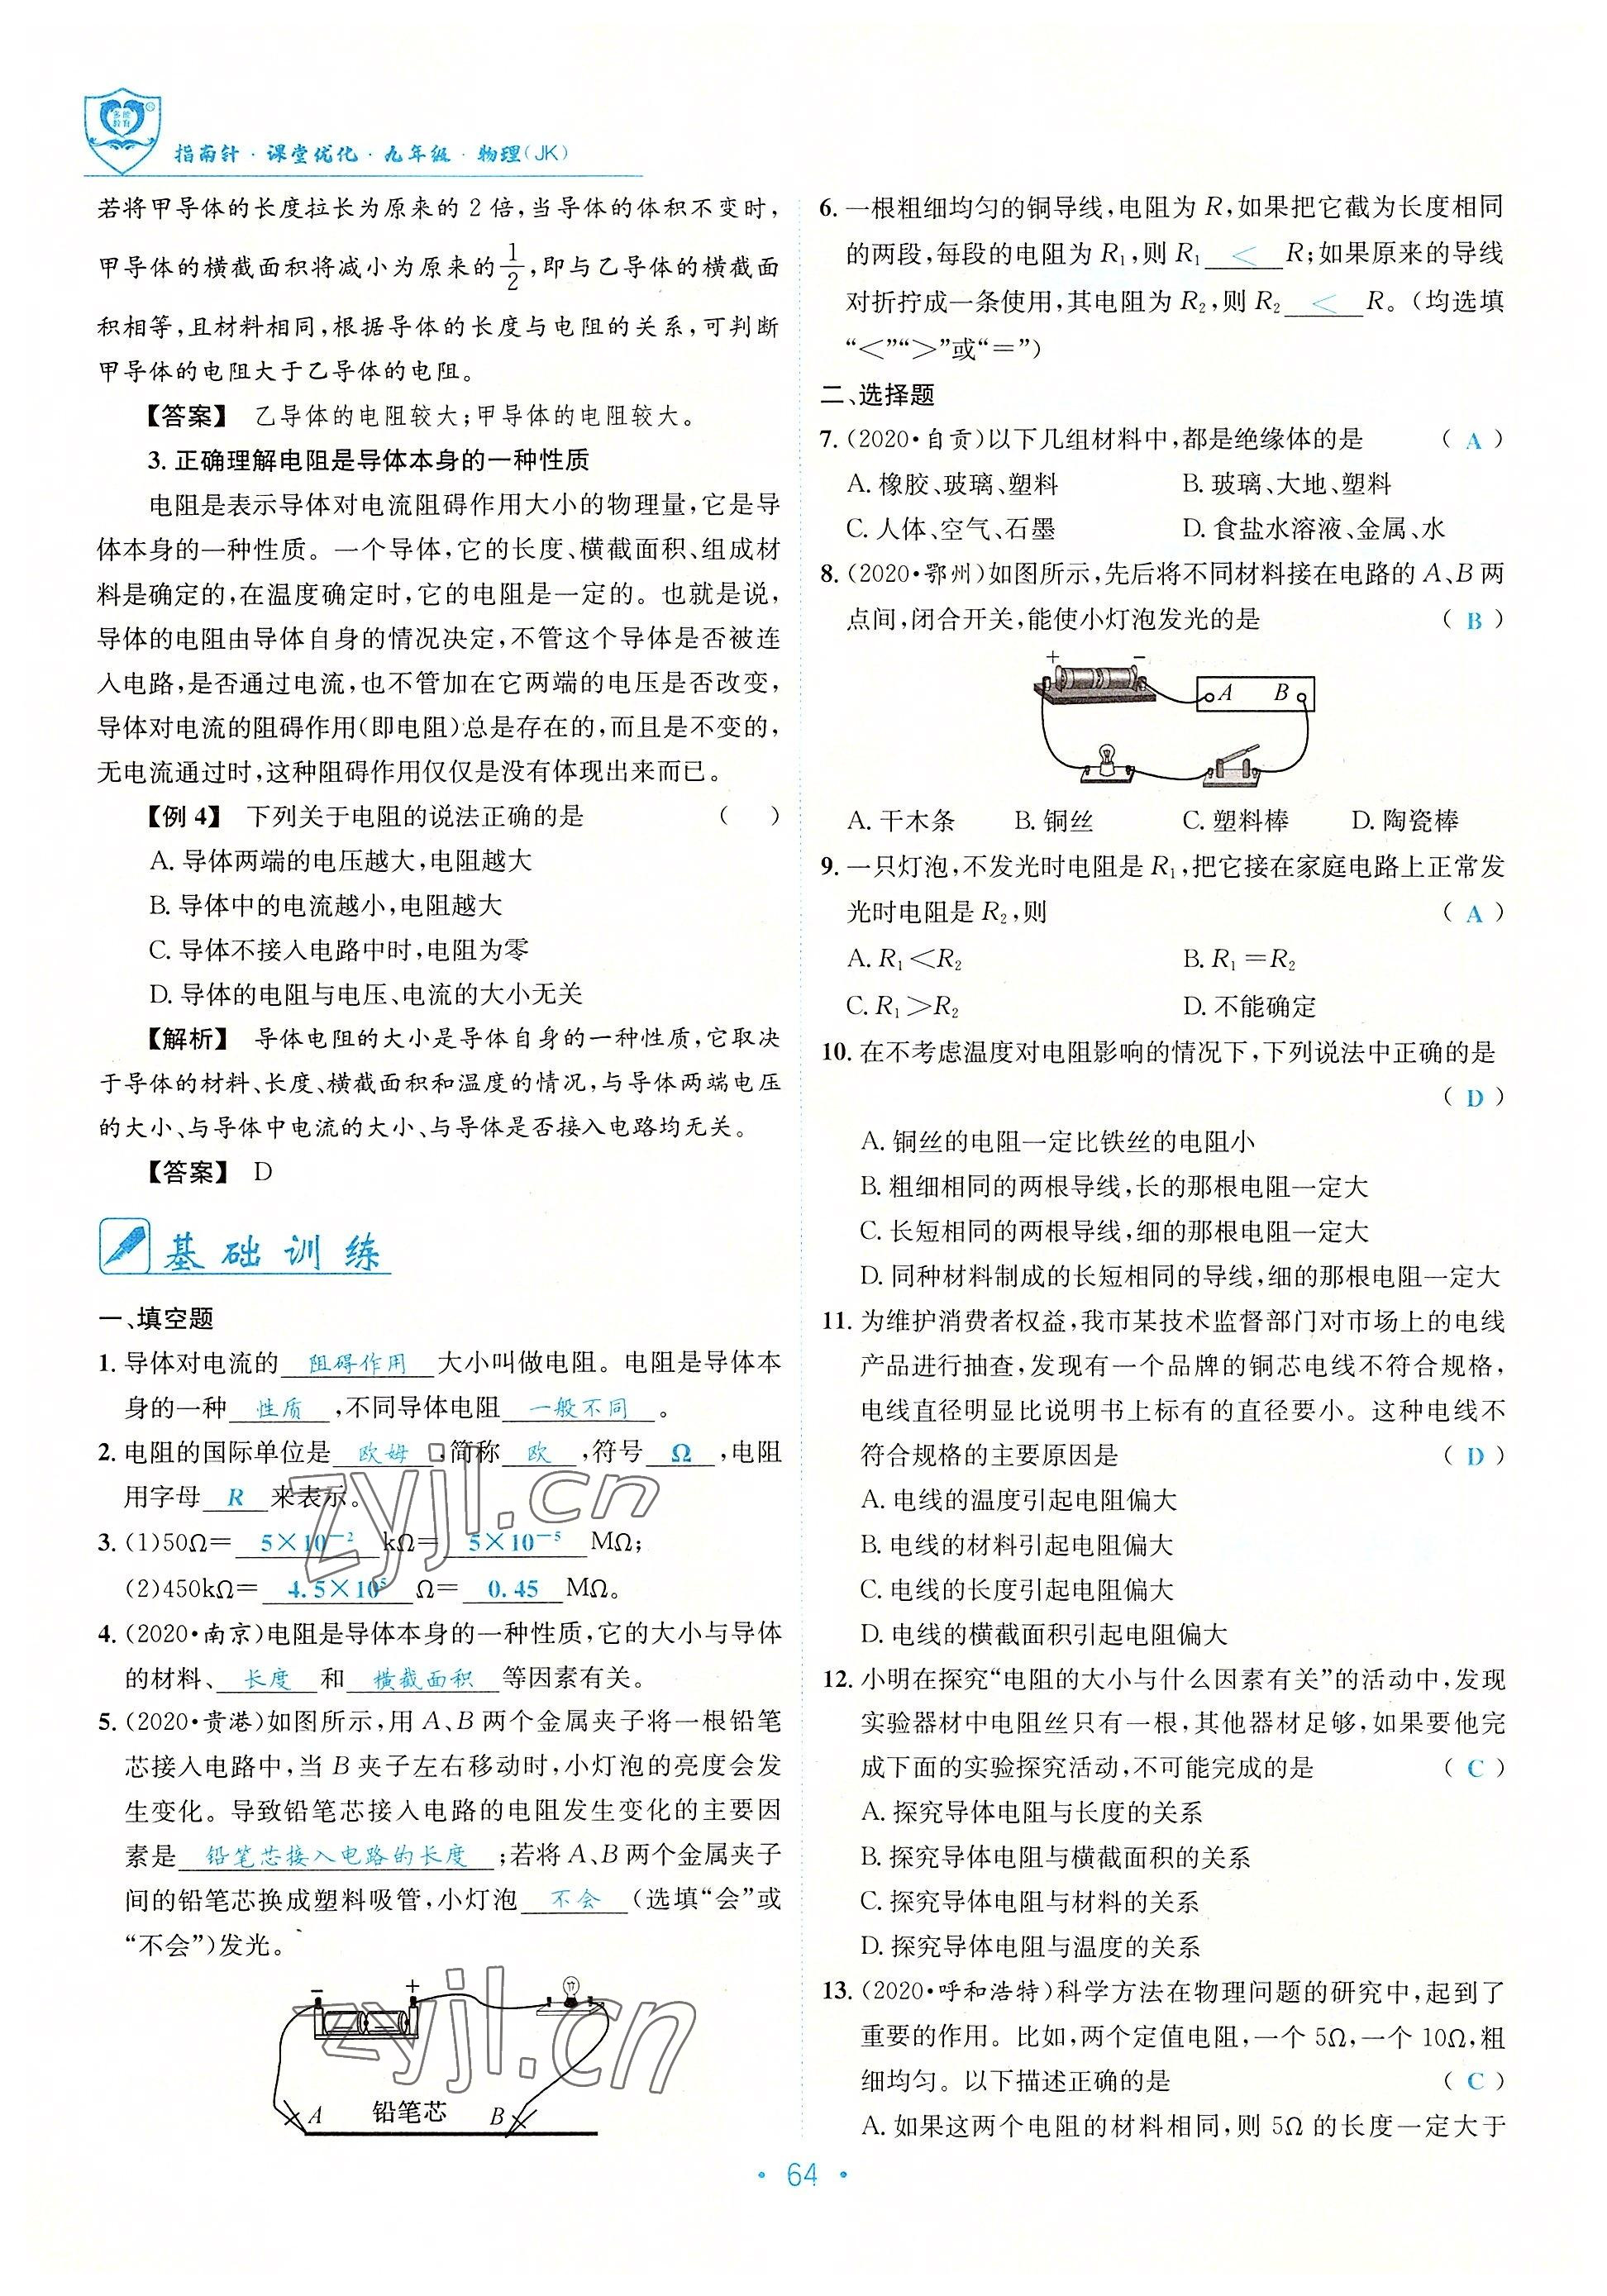 多能
教育
指南针·课堂优化·九年级·物理(JK)
若将甲导体的长度拉长为原来的 2 倍,当导体的体积不变时,
甲导体的横截面积将减小为原来的1/2,即与乙导体的横截面
积相等,且材料相同,根据导体的长度与电阻的关系,可判断
甲导体的电阻大于乙导体的电阻。
【答案】 乙导体的电阻较大;甲导体的电阻较大。
3. 正确理解电阻是导体本身的一种性质
电阻是表示导体对电流阻碍作用大小的物理量,它是导
体本身的一种性质。一个导体,它的长度、横截面积、组成材
料是确定的,在温度确定时,它的电阻是一定的。也就是说,
导体的电阻由导体自身的情况决定,不管这个导体是否被连
入电路,是否通过电流,也不管加在它两端的电压是否改变,
导体对电流的阻碍作用(即电阻)总是存在的,而且是不变的,
无电流通过时,这种阻碍作用仅仅是没有体现出来而已。
【例 4】 下列关于电阻的说法正确的是 ( )
A. 导体两端的电压越大,电阻越大
B. 导体中的电流越小,电阻越大
C. 导体不接入电路中时,电阻为零
D. 导体的电阻与电压、电流的大小无关
【解析】 导体电阻的大小是导体自身的一种性质,它取决
于导体的材料、长度、横截面积和温度的情况,与导体两端电压
的大小、与导体中电流的大小、与导体是否接入电路均无关。
【答案】 D
基础训练
一、填空题
1. 导体对电流的 阻碍作用 大小叫做电阻。电阻是导体本
身的一种 性质 ,不同导体电阻 一般不同 。
2. 电阻的国际单位是 欧姆 ,简称 欧 ,符号 Ω ,电阻
用字母 R 来表示。
3. (1)50Ω= 5×10⁻² kΩ= 5×10⁻⁵ MΩ;
(2)450kΩ= 4.5×10⁵ Ω= 0.45 MΩ。
4. (2020·南京)电阻是导体本身的一种性质,它的大小与导体
的材料、 长度 和 横截面积 等因素有关。
5. (2020·贵港)如图所示,用 A、B 两个金属夹子将一根铅笔
芯接入电路中,当 B 夹子左右移动时,小灯泡的亮度会发
生变化。导致铅笔芯接入电路的电阻发生变化的主要因
素是 铅笔芯接入电路的长度 ;若将 A、B 两个金属夹子
间的铅笔芯换成塑料吸管,小灯泡 不会 (选填“会”或
“不会”)发光。
− +
A 铅笔芯 B
zyjl.cn
zyjl.cn
6. 一根粗细均匀的铜导线,电阻为 R,如果把它截为长度相同
的两段,每段的电阻为 R₁,则 R₁ < R;如果原来的导线
对折拧成一条使用,其电阻为 R₂,则 R₂ < R。(均选填
“<”“>”或“=”)
二、选择题
7. (2020·自贡)以下几组材料中,都是绝缘体的是 ( A )
A. 橡胶、玻璃、塑料 B. 玻璃、大地、塑料
C. 人体、空气、石墨 D. 食盐水溶液、金属、水
8. (2020·鄂州)如图所示,先后将不同材料接在电路的 A、B 两
点间,闭合开关,能使小灯泡发光的是 ( B )
+ −
A B
A. 干木条 B. 铜丝 C. 塑料棒 D. 陶瓷棒
9. 一只灯泡,不发光时电阻是 R₁,把它接在家庭电路上正常发
光时电阻是 R₂,则 ( A )
A. R₁<R₂ B. R₁=R₂
C. R₁>R₂ D. 不能确定
10. 在不考虑温度对电阻影响的情况下,下列说法中正确的是
( D )
A. 铜丝的电阻一定比铁丝的电阻小
B. 粗细相同的两根导线,长的那根电阻一定大
C. 长短相同的两根导线,细的那根电阻一定大
D. 同种材料制成的长短相同的导线,细的那根电阻一定大
11. 为维护消费者权益,我市某技术监督部门对市场上的电线
产品进行抽查,发现有一个品牌的铜芯电线不符合规格,
电线直径明显比说明书上标有的直径要小。这种电线不
符合规格的主要原因是 ( D )
A. 电线的温度引起电阻偏大
B. 电线的材料引起电阻偏大
C. 电线的长度引起电阻偏大
D. 电线的横截面积引起电阻偏大
12. 小明在探究“电阻的大小与什么因素有关”的活动中,发现
实验器材中电阻丝只有一根,其他器材足够,如果要他完
成下面的实验探究活动,不可能完成的是 ( C )
A. 探究导体电阻与长度的关系
B. 探究导体电阻与横截面积的关系
C. 探究导体电阻与材料的关系
D. 探究导体电阻与温度的关系
13. (2020·呼和浩特)科学方法在物理问题的研究中,起到了
重要的作用。比如,两个定值电阻,一个 5Ω,一个 10Ω,粗
细均匀。以下描述正确的是 ( C )
A. 如果这两个电阻的材料相同,则 5Ω 的长度一定大于
· 64 ·